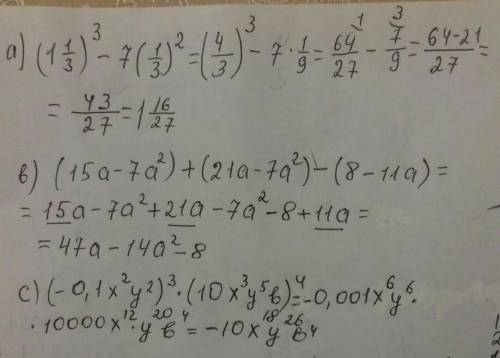 а) (1 1/3)³ - 7(1/3)² = (4/3)³ - 7 · 1/9 = 64/27 ¹ - 7/9 ³ = 64-21/27 =
= 43/27 = 1 16/27
в) (15а-7а²)+(21а-7а²)-(8-11а)=
= 15а-7а²+21а-7а²-8+11а=
= 47а-14а²-8
с) (-0,1x²y²)³·(10x³y⁵в)⁴=-0,001x⁶y⁶·
·10000x¹²·y²⁰в⁴=-10x¹⁸y²⁶в⁴